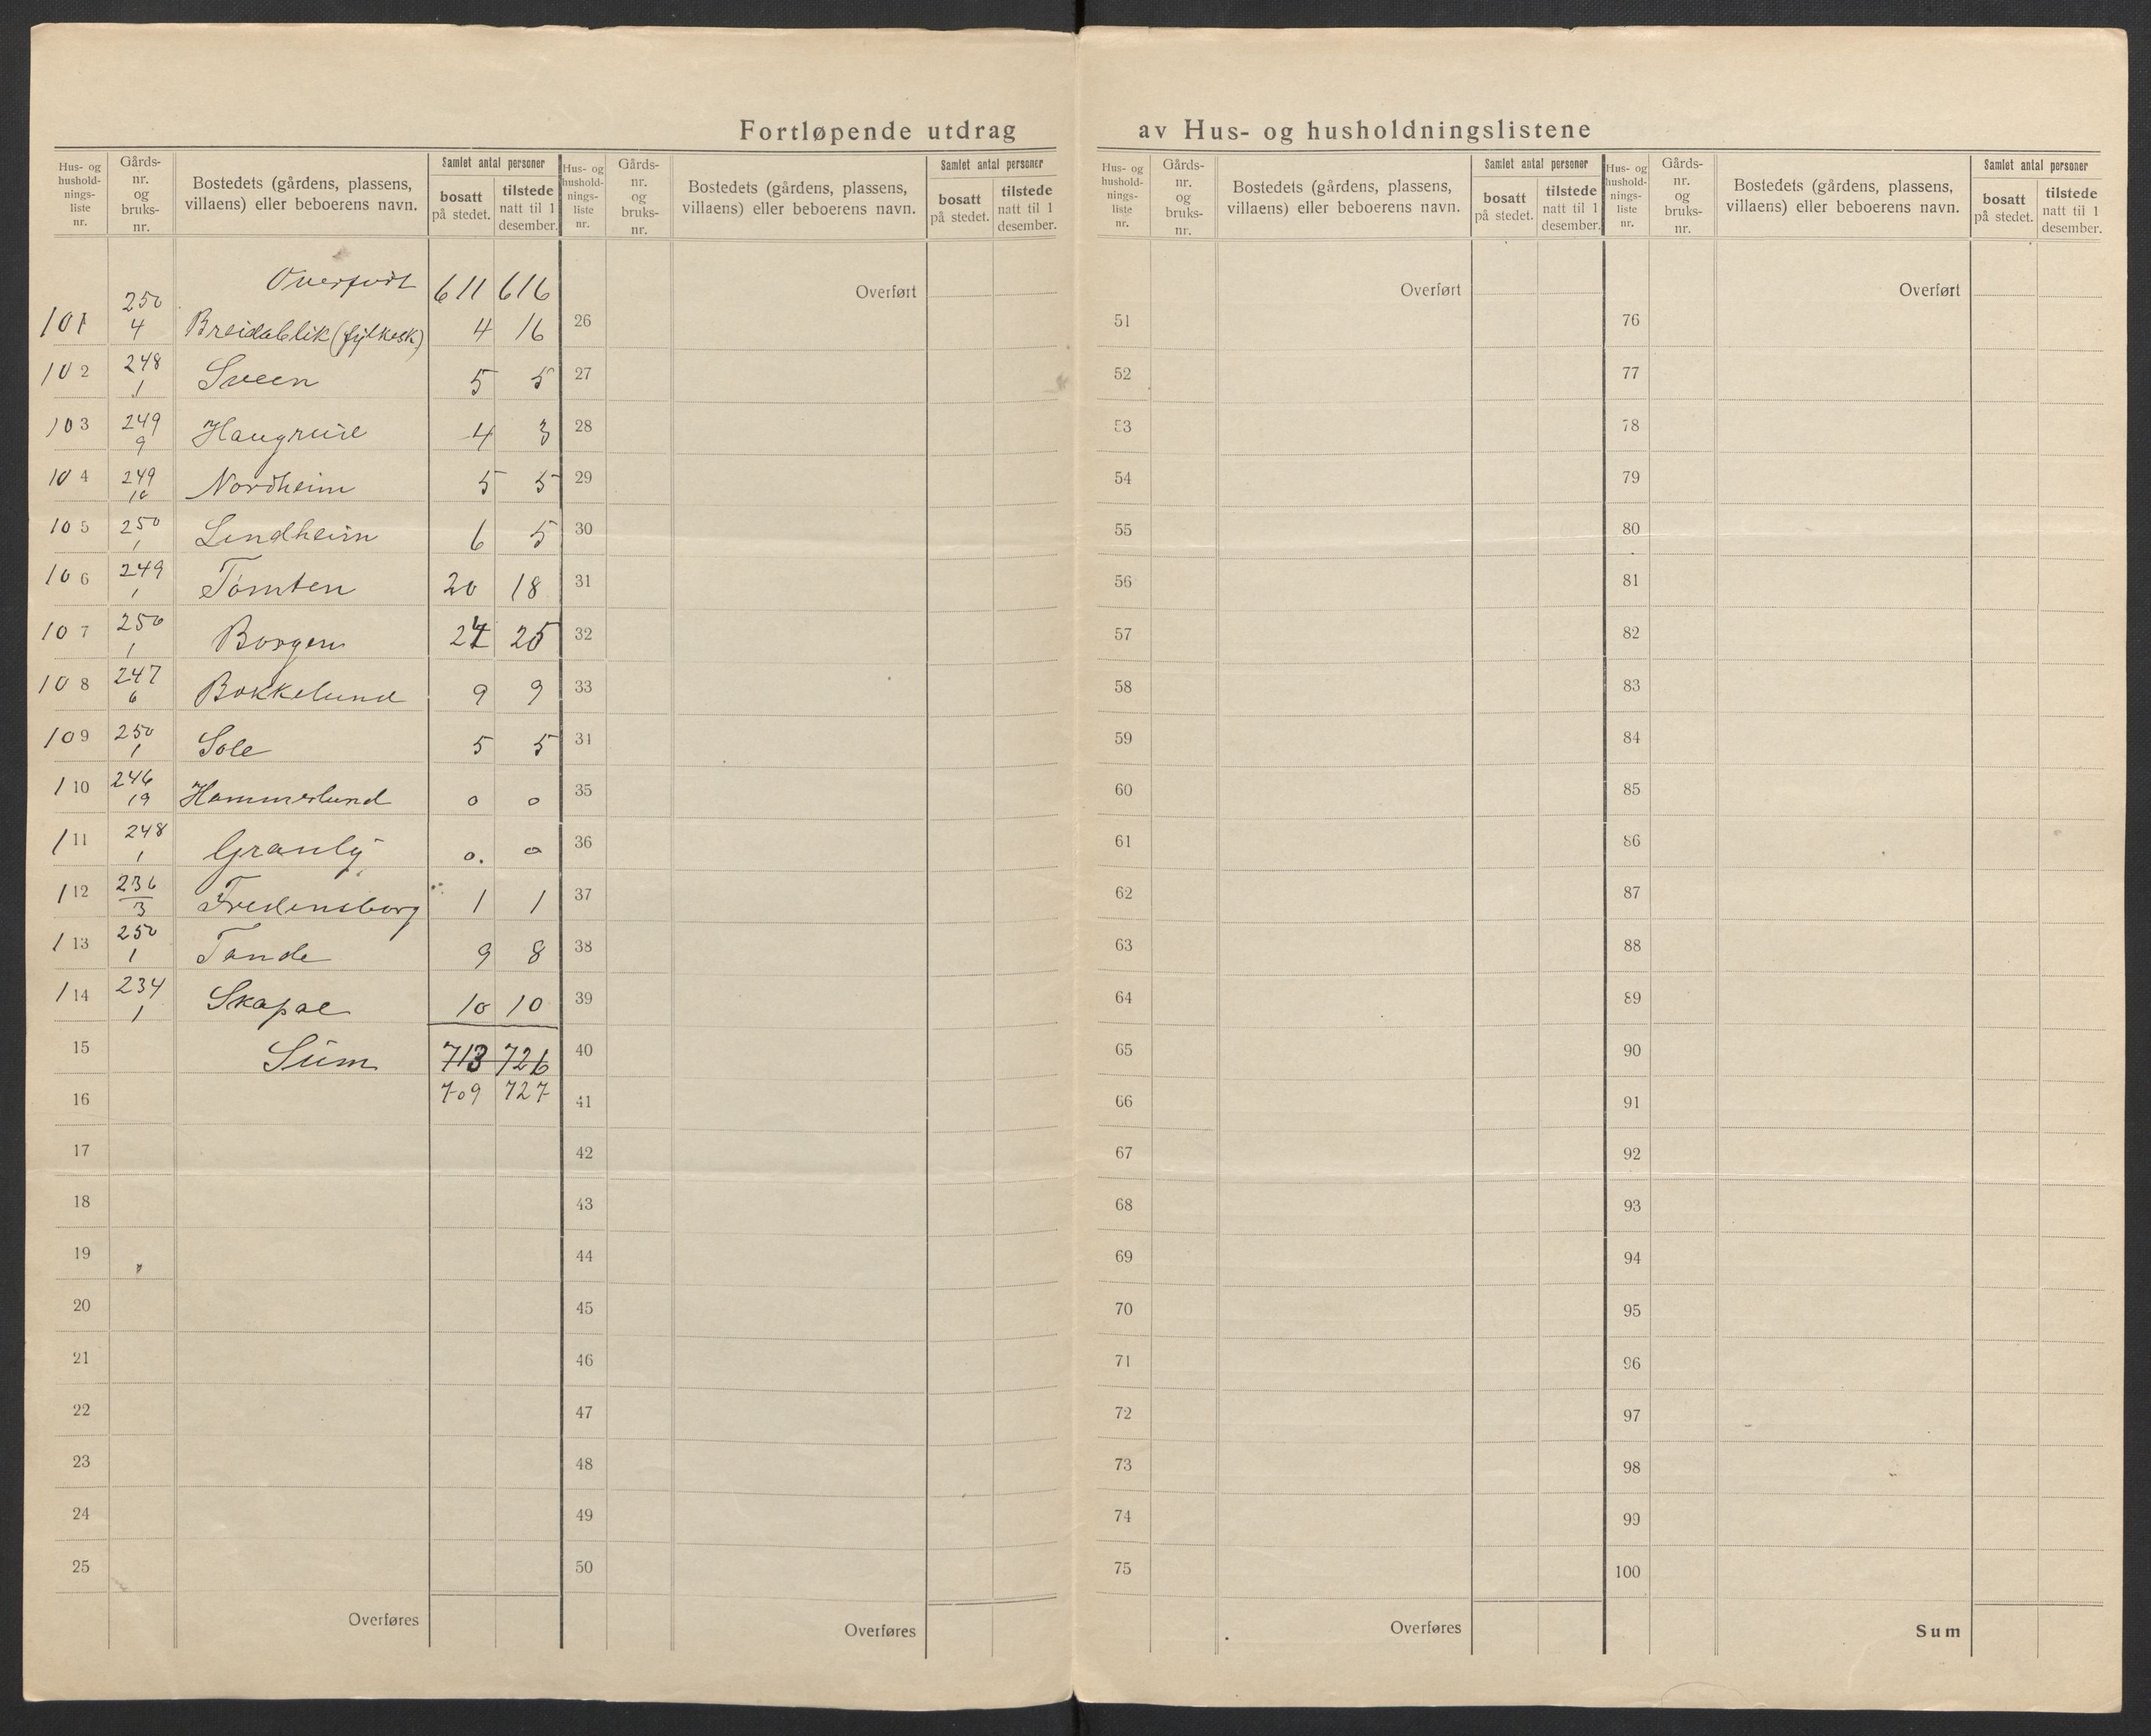 Fortløpende utdrag av Hus- og husholdningslistene
Hus- og husholdnings-liste nr. | Gårds-nr. og bruks-nr. | Bostedets (gårdens, plassens, villaens) eller beboerens navn. | Samlet antal personer | bosatt på stedet. | tilstede natt til 1 desember.
Overført 611 616
101 250/4 Breidablik (fylkesk) 4 16
102 248/1 Sveen 5 5
103 249/9 Haugruie 4 3
104 249/10 Nordheim 5 5
105 250/1 Lindheim 6 5
106 249/1 Tomten 20 18
107 250/1 Borgen 25
108 247/6 Bakkelund 9 9
109 250/1 Sole 5 5
110 246/19 Hammerlund 0 0
111 248/1 Granly 0. 0
112 236/3 Fredensborg 1 1
113 250/1 Tande 9 8
114 234/1 Skapal 10 10
15 Sum 713 726
16 709 727
17
18
19
20
21
22
23
24
25
Overføres
Hus- og husholdnings-liste nr. | Gårds-nr. og bruks-nr. | Bostedets (gårdens, plassens, villaens) eller beboerens navn. | Samlet antal personer | bosatt på stedet. | tilstede natt til 1 desember.
Overført
26
27
28
29
30
31
32
33
31
35
36
37
38
39
40
41
42
43
44
45
46
47
48
49
50
Overføres
Hus- og husholdnings-liste nr. | Gårds-nr. og bruks-nr. | Bostedets (gårdens, plassens, villaens) eller beboerens navn. | Samlet antal personer | bosatt på stedet. | tilstede natt til 1 desember.
Overført
51
52
53
54
55
56
57
58
59
60
61
62
63
64
65
66
67
68
69
70
71
72
73
74
75
Overføres
Hus- og husholdnings-liste nr. | Gårds-nr. og bruks-nr. | Bostedets (gårdens, plassens, villaens) eller beboerens navn. | Samlet antal personer | bosatt på stedet. | tilstede natt til 1 desember.
Overført
76
77
78
79
80
81
82
83
84
85
86
87
88
89
90
91
92
93
94
95
96
97
98
99
100
Sum